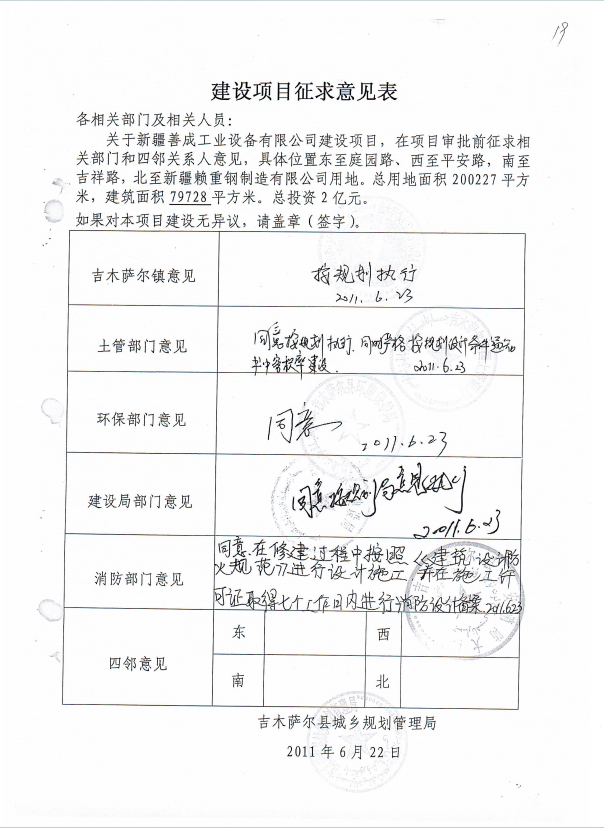 19
建设项目征求意见表
各相关部门及相关人员：
关于新疆善成工业设备有限公司建设项目，在项目审批前征求相
关部门和四邻关系人意见，具体位置东至庭园路、西至平安路，南至
吉祥路，北至新疆赖重钢制造有限公司用地。总用地面积 200227 平方
米，建筑面积 79728 平方米。总投资 2 亿元。
如果对本项目建设无异议，请盖章（签字）。
吉木萨尔镇意见
按规划执行
2011.6.23
土管部门意见
同意按规划执行.同时严格按规划设计条件通知
书中容积率建设.
2011.6.23
环保部门意见
同意
2011.6.23
建设局部门意见
同意按规划局意见执行
2011.6.23
消防部门意见
同意.在修建过程中按照《建筑设计防
火规范》进行设计施工 并在施工许
可证取得七个工作日内进行消防设计备案.2011.6.23
四邻意见
东
西
南
北
吉木萨尔县城乡规划管理局
2011 年 6 月 22 日